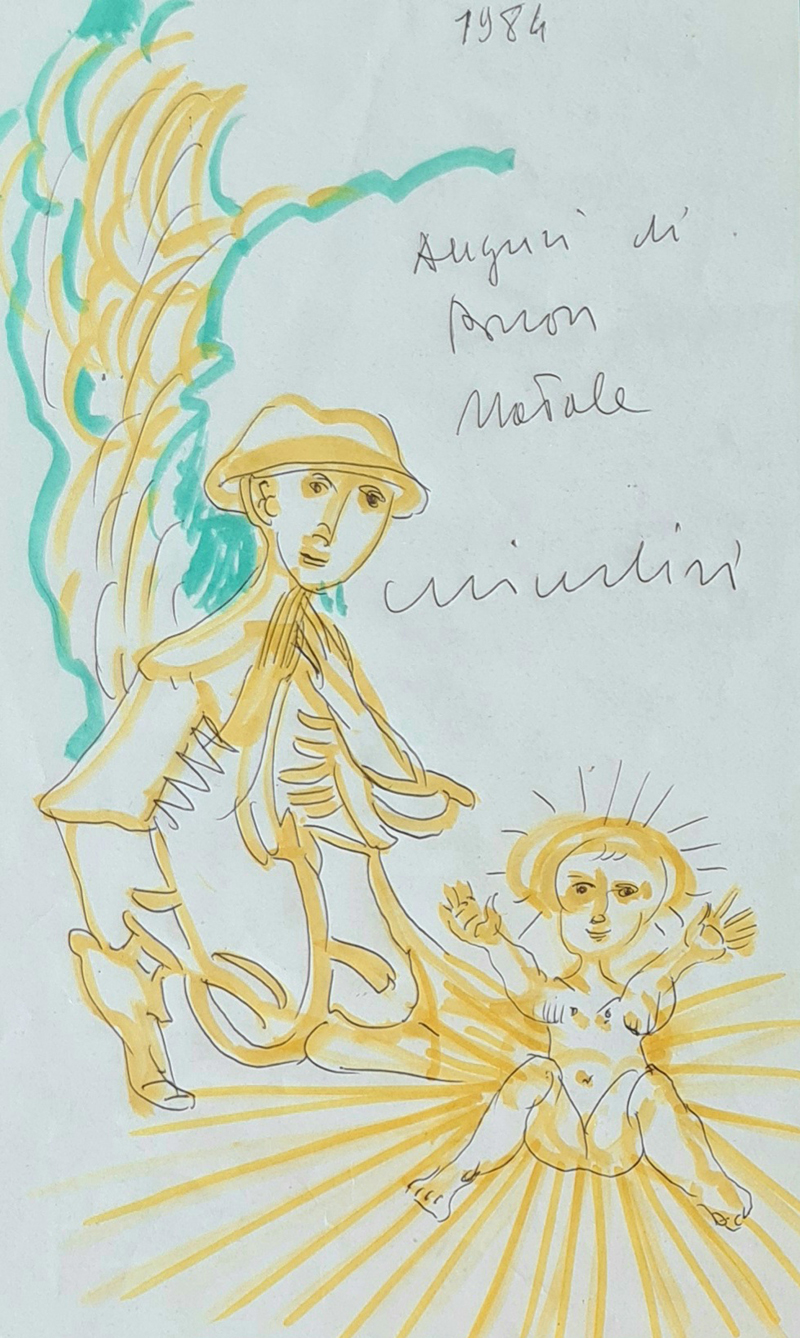 1984
Auguri di
Buon
Natale